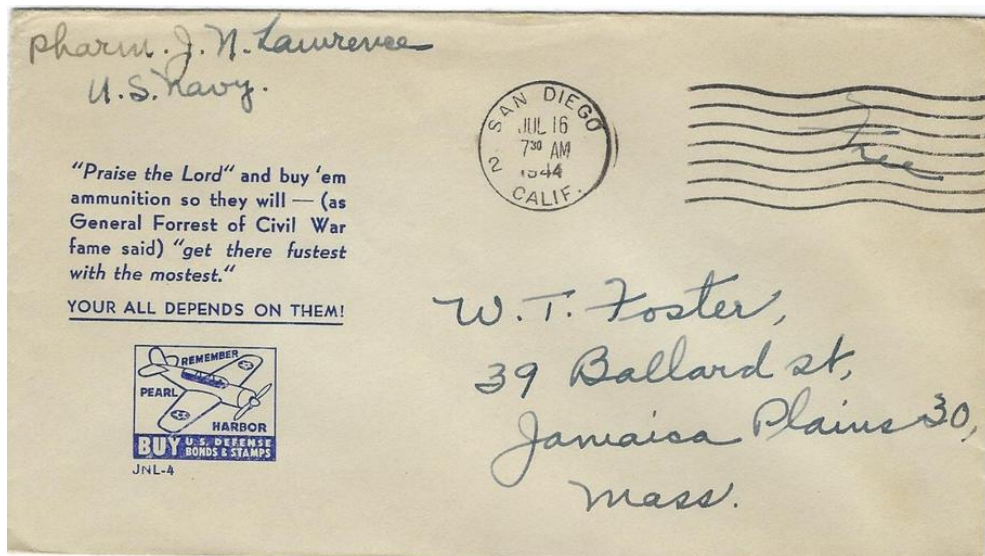 Pharm. J. N. Lawrence
U.S. Navy.
SAN DIEGO
JUL 16
7³⁰ AM
1944
2 CALIF.
Free
"Praise the Lord" and buy 'em
ammunition so they will — (as
General Forrest of Civil War
fame said) "get there fustest
with the mostest."
YOUR ALL DEPENDS ON THEM!
REMEMBER
PEARL
HARBOR
BUY U.S. DEFENSE
BONDS & STAMPS
JNL-4
W. T. Foster,
39 Ballard st,
Jamaica Plains 30,
Mass.